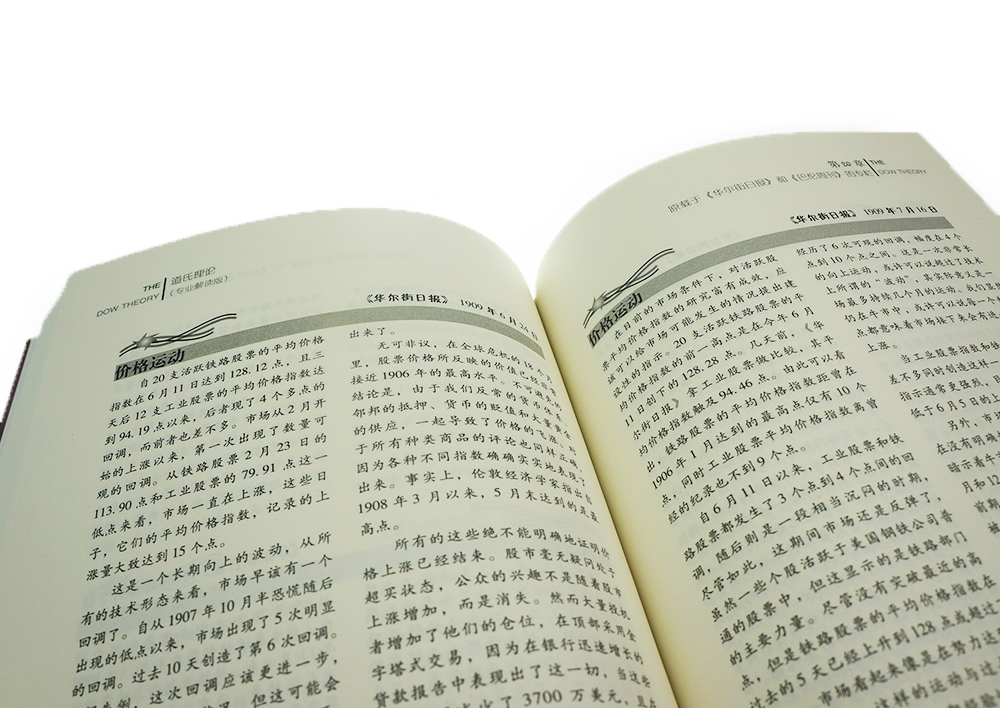 THE
DOW THEORY
道氏理论
（专业解读版）
《华尔街日报》 1909年6月24日
价格运动
自20支活跃铁路股票的平均价格
指数在6月11日达到128.12点，且三
天后12支工业股票的平均价格指数达
到94.19点以来，后者现了4个多点的
回调，而前者也差不多。市场从2月开
始的上涨以来，第一次出现了数量可
观的回调。从铁路股票2月23日的
113.90点和工业股票的79.91点这一
低点来看，市场一直在上涨，这些日
子，它们的平均价格指数，记录的上
涨量大致达到15个点。
这是一个长期向上的波动，从所
有的技术形态来看，市场早该有一个
回调了。自从1907年10月半恐慌随后
出现的低点以来，市场出现了5次明显
的回调。过去10天创造了第6次回调。
这次回调应该更进一步，
但这可能会
出来了。
无可非议，在全球危机的18个月
里，股票价格所反映的价值已经很
接近1906年的最高水平。不可避免的
结论是，由于我们反常的货币体系、
邻邦的抵押、货币的贬值和大量黄金
的供应，一起导致了价格的飞涨。对
于所有种类商品的评论也同样正确，
因为各种不同指数确确实实地表现了
出来。事实上，伦敦经济学家指出自
1908年3月以来，5月末达到的是最
高点。
所有的这些绝不能明确地证明价
格上涨已经结束。股市毫无疑问处于
超买状态，公众的兴趣不是随着股市
上涨增加，而是消失。然而大量投机
者增加了他们的仓位，在顶部采用金
字塔式交易，因为在银行迅速增长的
贷款报告中表现出了这一切，当这些
3700万美元，且在
第20章
原载于《华尔街日报》和《巴伦周刊》的专栏
THE
DOW THEORY
《华尔街日报》 1909年7月16日
价格运动
在目前的市场条件下，对活跃股
票平均价格指数的研究富有成效，应
该可以给市场可能发生的情况提出建
设性的指示。20支活跃铁路股票的平
均价格指数的前一高点是在今年6月
11日创下的128.28点。几天前，《华
尔街日报》拿工业股票做比较，其平
均价格指数触及94.46点。由此可以看
出，铁路股票的平均价格指数距曾在
1906年1月达到的最高点仅有10个
点，同时工业股票平均价格指数离曾
经的纪录也不到9个点。
自6月11日以来，工业股票和铁
路股票都发生了3个点到4个点间的回
调，随后则是一段相当沉闷的时期，
尽管如此，这期间市场还是反弹了，
虽然一些个股活跃于美国钢铁公司普
通的股票中，但这显示的是铁路部门
的主要力量。尽管没有突破最近的高
点，但是铁路股票的平均价格指数在
过去的5天已经上升到128点或超过
市场看起来像是在努力达
这样的运动与过
经历了6次可观的回调，幅度在4个
点到10个点之间。这是一次非常长
的向上运动，或许可以说超过了技术
上所谓的“波动”，其实际意义是一
场最多持续几个月的运动。我们显然
仍在牛市中，或许可以说每一个
点都意味着市场接下来会有
上涨。
当工业股票指数和
差不多同时创造这样
指示通常是要强烈，
低于6月5日的
另外，市
在没有明确
暗示着牛
月和12
前期